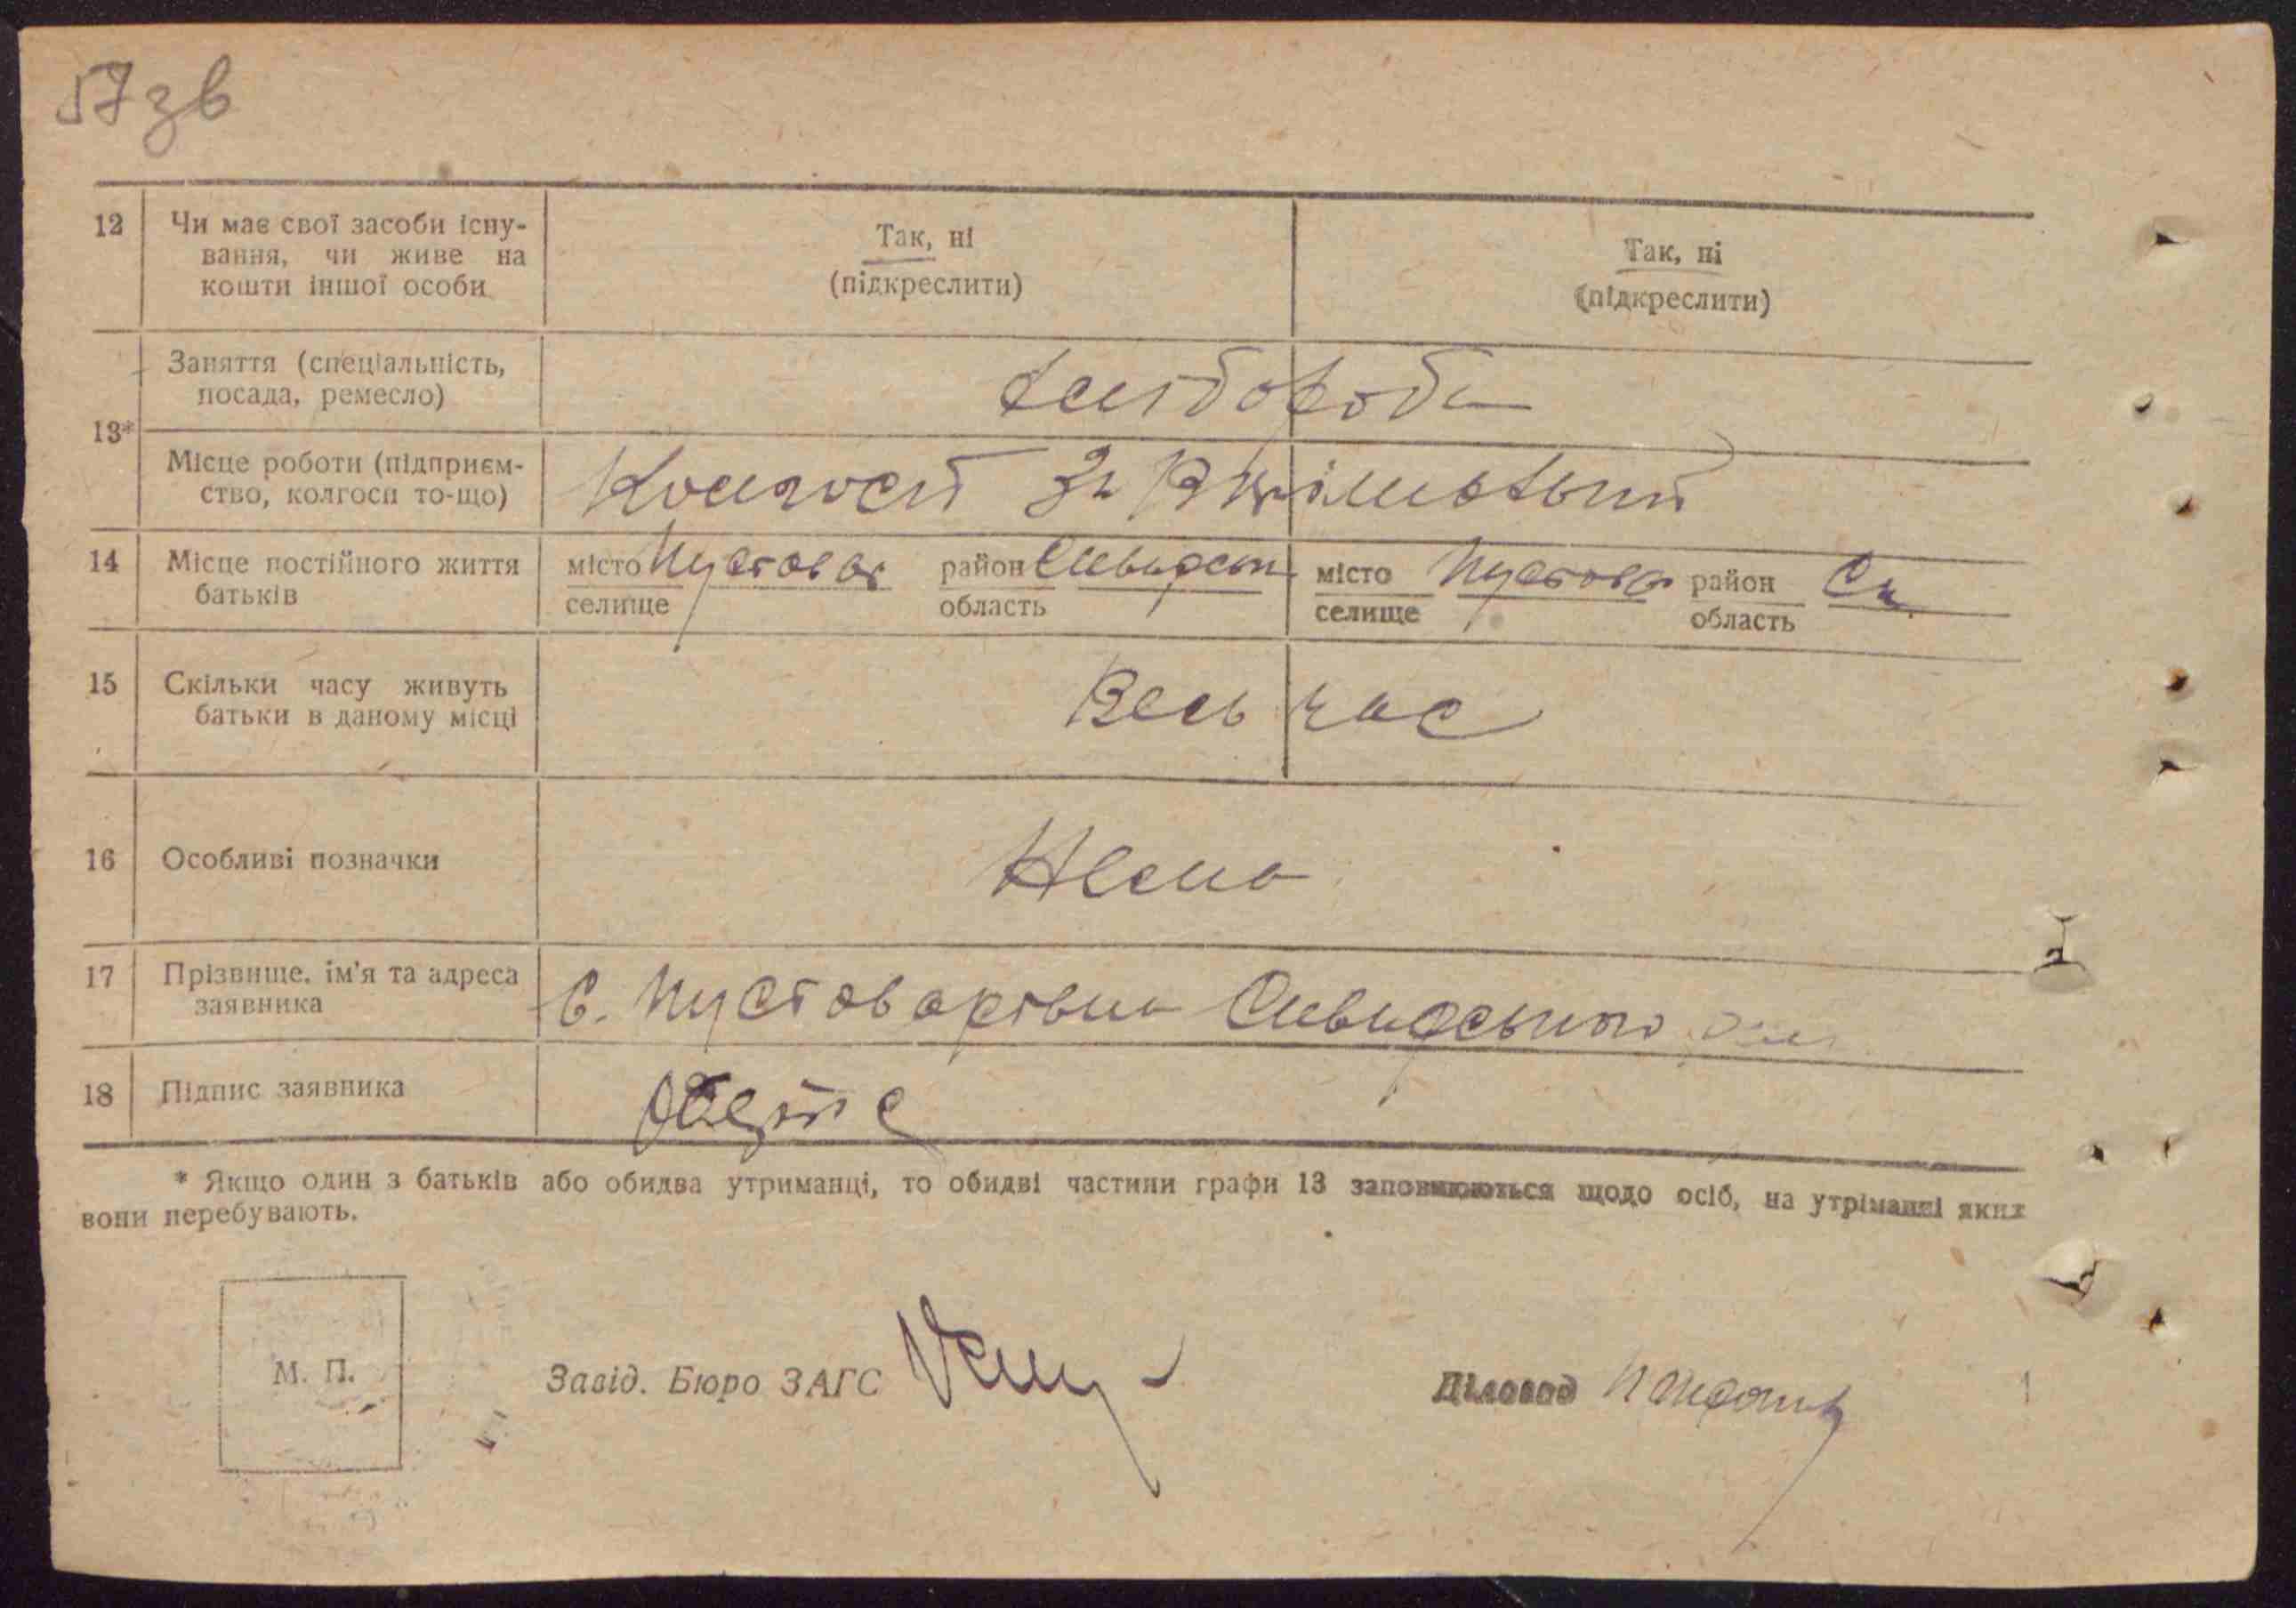 57 зв
12 Чи має свої засоби існу-
вання, чи живе на
кошти іншої особи
Так, ні
(підкреслити)
Так, ні
(підкреслити)
13*
Заняття (спеціальність,
посада, ремесло)
хлібороби
Місце роботи (підприєм-
ство, колгосп то-що)
Колгосп
14 Місце постійного життя
батьків
місто Пустовар район Сквирськ
селище область
місто Пустова район Ск.
селище область
15 Скільки часу живуть
батьки в даному місці
Весь час
16 Особливі позначки
Нема
17 Прізвище, ім'я та адреса
заявника
с. Пустоварівка Сквирського
18 Підпис заявника
* Якщо один з батьків або обидва утриманці, то обидві частини графи 13 заповнюються щодо осіб, на утріманні яких
вони перебувають.
М. П.
Завід. Бюро ЗАГС
Діловод